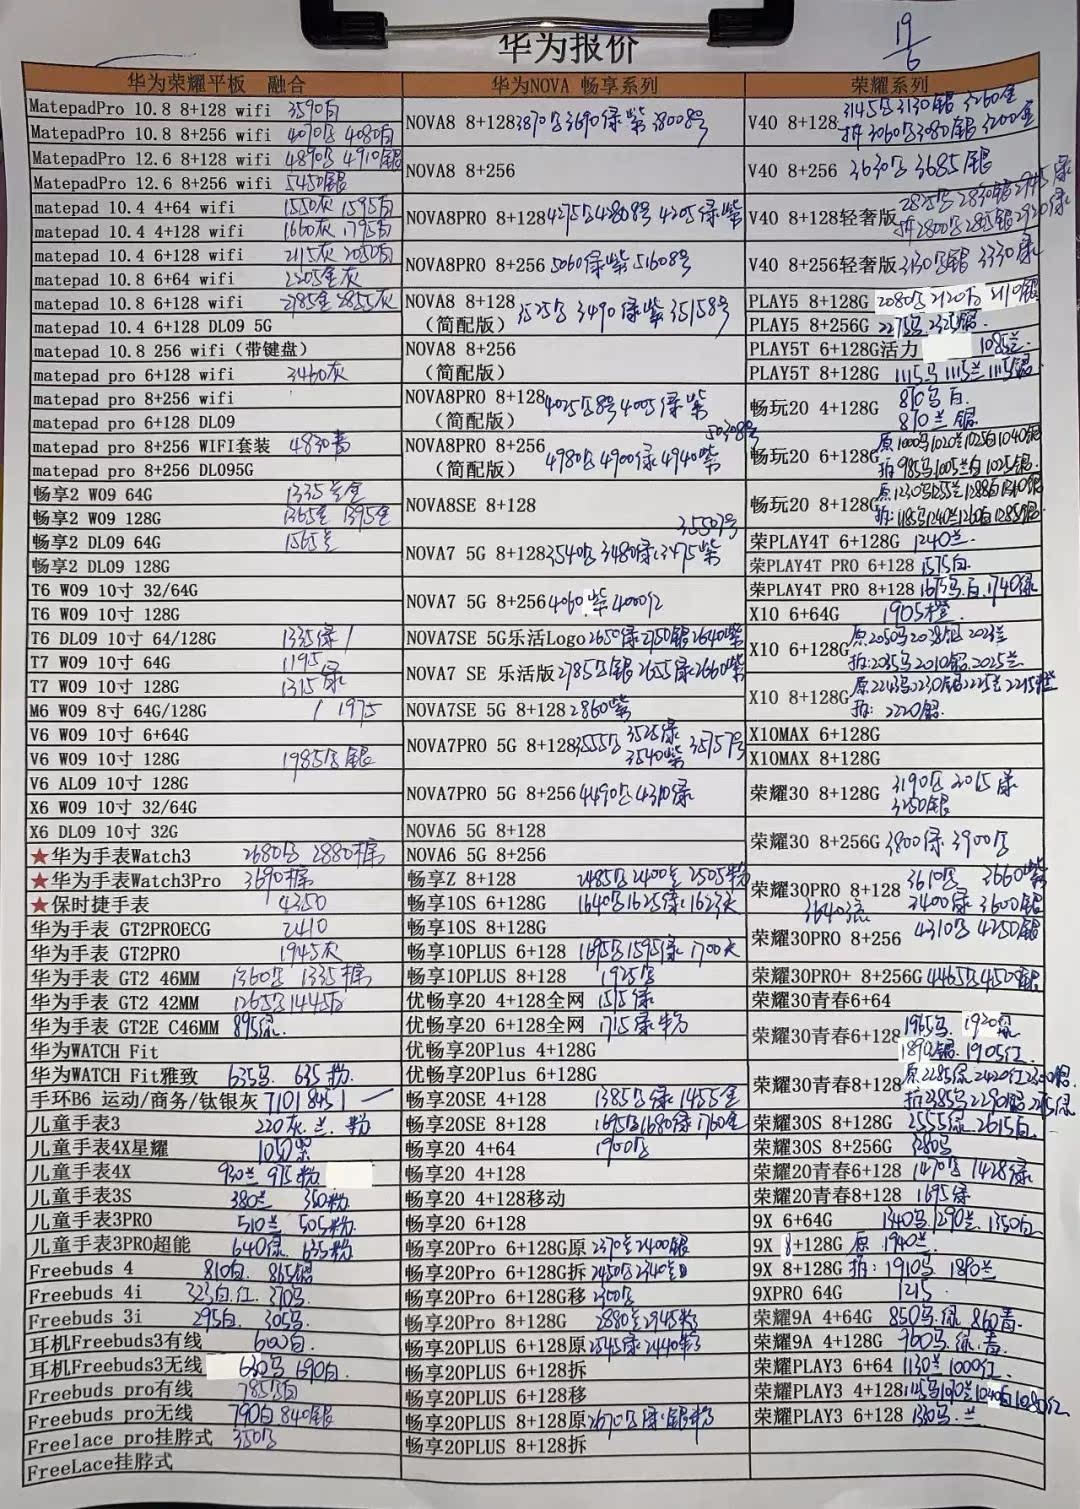 华为报价
19/6
华为荣耀平板 融合
MatepadPro 10.8 8+128 wifi 3590白
MatepadPro 10.8 8+256 wifi 4070 4080白
MatepadPro 12.6 8+128 wifi 4890 4910银
MatepadPro 12.6 8+256 wifi 5450银
matepad 10.4 4+64 wifi 1550灰 1595白
matepad 10.4 4+128 wifi 1660灰 1795白
matepad 10.4 6+128 wifi 2115灰 2050白
matepad 10.8 6+64 wifi 2205金灰
matepad 10.8 6+128 wifi 2785金 2855灰
matepad 10.4 6+128 DL09 5G
matepad 10.8 256 wifi（带键盘）
matepad pro 6+128 wifi 3460灰
matepad pro 8+256 wifi
matepad pro 6+128 DL09
matepad pro 8+256 WIFI套装 4830青
matepad pro 8+256 DL095G
畅享2 W09 64G 1335兰金
畅享2 W09 128G 1365金 1395金
畅享2 DL09 64G 1565兰
畅享2 DL09 128G
T6 W09 10寸 32/64G
T6 W09 10寸 128G
T6 DL09 10寸 64/128G 1335绿 /
T7 W09 10寸 64G 1195
T7 W09 10寸 128G 1315绿
M6 W09 8寸 64G/128G / 1975
V6 W09 10寸 6+64G
V6 W09 10寸 128G 1985 银
V6 AL09 10寸 128G
X6 W09 10寸 32/64G
X6 DL09 10寸 32G
★华为手表Watch3 2680 2880棕
★华为手表Watch3Pro 3690棕
★保时捷手表 4350
华为手表 GT2PROECG 2410
华为手表 GT2PRO 1945灰
华为手表 GT2 46MM 1360 1335棕
华为手表 GT2 42MM 1265 1445
华为手表 GT2E C46MM 895绿.
华为WATCH Fit
华为WATCH Fit雅致 635 635粉.
手环B6 运动/商务/钛银灰 710 845
儿童手表3 220灰.兰.粉
儿童手表4X星耀 1050紫
儿童手表4X 930兰 975粉
儿童手表3S 380兰 350粉.
儿童手表3PRO 510兰 505粉.
儿童手表3PRO超能 640绿. 635粉
Freebuds 4 810白. 865银
Freebuds 4i 323白.红. 370
Freebuds 3i 295白. 305
耳机Freebuds3有线 600白.
耳机Freebuds3无线 630 690白.
Freebuds pro有线 785
Freebuds pro无线 790白 840银
Freelace pro挂脖式 350
FreeLace挂脖式
华为NOVA 畅享系列
NOVA8 8+128 3870 3690绿紫 3800 8号
NOVA8 8+256
NOVA8PRO 8+128 4275 4280 8号 4205绿紫
NOVA8PRO 8+256 5060绿紫 5160 8号
NOVA8 8+128（简配版） 3525 3490绿紫 3515 8号
NOVA8 8+256（简配版）
NOVA8PRO 8+128（简配版） 4025 8号 4005绿紫
NOVA8PRO 8+256（简配版） 4980 4900绿 4940紫 5030 8号
NOVA8SE 8+128
NOVA7 5G 8+128 3540 3480绿 3475紫 3550 7号
NOVA7 5G 8+256 4060 紫 4000红
NOVA7SE 5G乐活Logo 2650绿 2750银 2640紫
NOVA7 SE 乐活版 2785 银 2655绿 2660紫
NOVA7SE 5G 8+128 2860紫
NOVA7PRO 5G 8+128 3555 3525绿 3540紫 3575 7号
NOVA7PRO 5G 8+256 4490 4310绿
NOVA6 5G 8+128
NOVA6 5G 8+256
畅享Z 8+128 2485 2400兰 2505粉
畅享10S 6+128G 1640 1625绿 1625天
畅享10S 8+128G
畅享10PLUS 6+128 1695 1595绿 1700天
畅享10PLUS 8+128 1925
优畅享20 4+128全网 1515绿
优畅享20 6+128全网 1715绿粉
优畅享20Plus 4+128G
优畅享20Plus 6+128G
畅享20SE 4+128 1385 绿 1455金
畅享20SE 8+128 1695 1680绿 1760金
畅享20 4+64 1900
畅享20 4+128
畅享20 4+128移动
畅享20 6+128
畅享20Pro 6+128G原 2370兰 2400银
畅享20Pro 6+128G拆 2450 2340兰
畅享20Pro 6+128G移 2300
畅享20Pro 8+128G 2880兰 2945粉
畅享20PLUS 6+128原 2545绿 2440粉
畅享20PLUS 6+128拆
畅享20PLUS 6+128移
畅享20PLUS 8+128原 2670 绿银粉
畅享20PLUS 8+128拆
荣耀系列
V40 8+128 3145 3130银 3260金
拆3060 3080银 3200金
V40 8+256 3630 3685银
V40 8+128轻奢版 2825 2830银 2945绿
拆2800 2805银 2920绿
V40 8+256轻奢版 3130 银 3330绿
PLAY5 8+128G 2080 2120 2110银
PLAY5 8+256G 2275 2325银.
PLAY5T 6+128G活力 1085兰
PLAY5T 8+128G 1115 1115兰 1115银
畅玩20 4+128G 870 白. 870兰银
畅玩20 6+128G 原1000 1020兰 1025白 1040银
拆985 1005兰白 1025银.
畅玩20 8+128G 原1230 1255兰 1288白 1340银
拆:1185 1240兰 1260白 1285银
荣PLAY4T 6+128G 1240兰.
荣PLAY4T PRO 6+128 1575白.
荣PLAY4T PRO 8+128 1675 .白.1740绿
X10 6+64G 1905橙
X10 6+128G 原2050 2038银 2023兰
拆:2035 2010银.2025兰
X10 8+128G 原2243 2230银 2225兰 2215橙
拆: 2220银.
X10MAX 6+128G
X10MAX 8+128G
荣耀30 8+128G 3190 2015绿 3250银
荣耀30 8+256G 3800绿 3900
荣耀30PRO 8+128 3610 3660紫 3400绿 3600银 3640流
荣耀30PRO 8+256 4310 4250银
荣耀30PRO+ 8+256G 4465 4450银
荣耀30青春6+64
荣耀30青春6+128 1965 . 1920 1890银. 1905红.
荣耀30青春8+128 原2285绿 2420红 2300银.
拆2285 2290银 2215绿
荣耀30S 8+128G 2555绿. 2615白.
荣耀30S 8+256G 3280
荣耀20青春6+128 1470 1428绿
荣耀20青春8+128 1695绿
9X 6+64G 1340 1290兰. 1350白.
9X 8+128G 原 1940兰.
9X 8+128G 拆: 1910 1890兰
9XPRO 64G 1215
荣耀9A 4+64G 850 .绿 860青
荣耀9A 4+128G 960 .绿.青.
荣耀PLAY3 6+64 1130兰 1000红.
荣耀PLAY3 4+128 1145 1090兰 1040白 1080红
荣耀PLAY3 6+128 1330 .兰